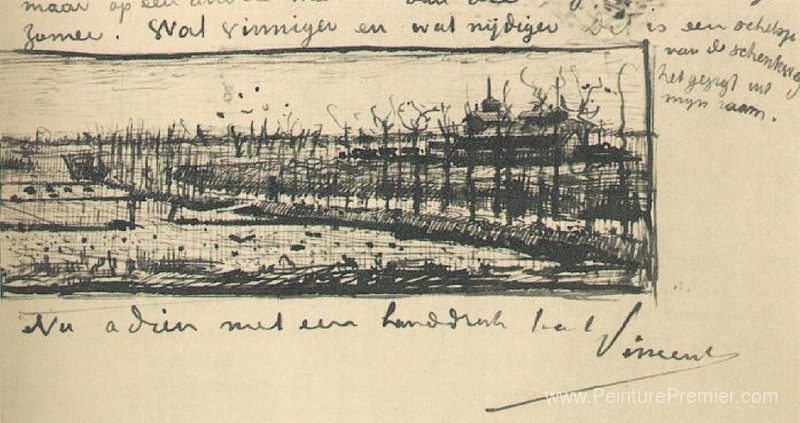 maar op een
zomer. Wat vinniger en wat nijdiger Dit is een schetsje
van de schenkweg
het gezigt uit
mijn raam.
Nu adieu met een handdruk
Vincent
www.PeinturePremier.com